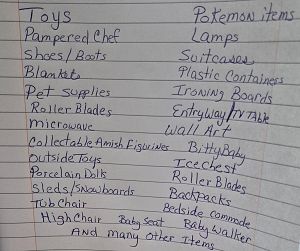 Toys Pokemon items
Pampered Chef Lamps
Shoes/Boots Suitcases
Blankets Plastic Containess
Pet supplies Ironing Boards
Roller Blades EntryWay/TV Table
microwave Wall Art
Collectable Amish Figurines Bitty Baby
outside Toys Ice Chest
Porcelain Dolls Roller Blades
Sleds/Snowboards Backpacks
Tub Chair Bedside commode
High Chair Baby Seat Baby Walker
And many other Items